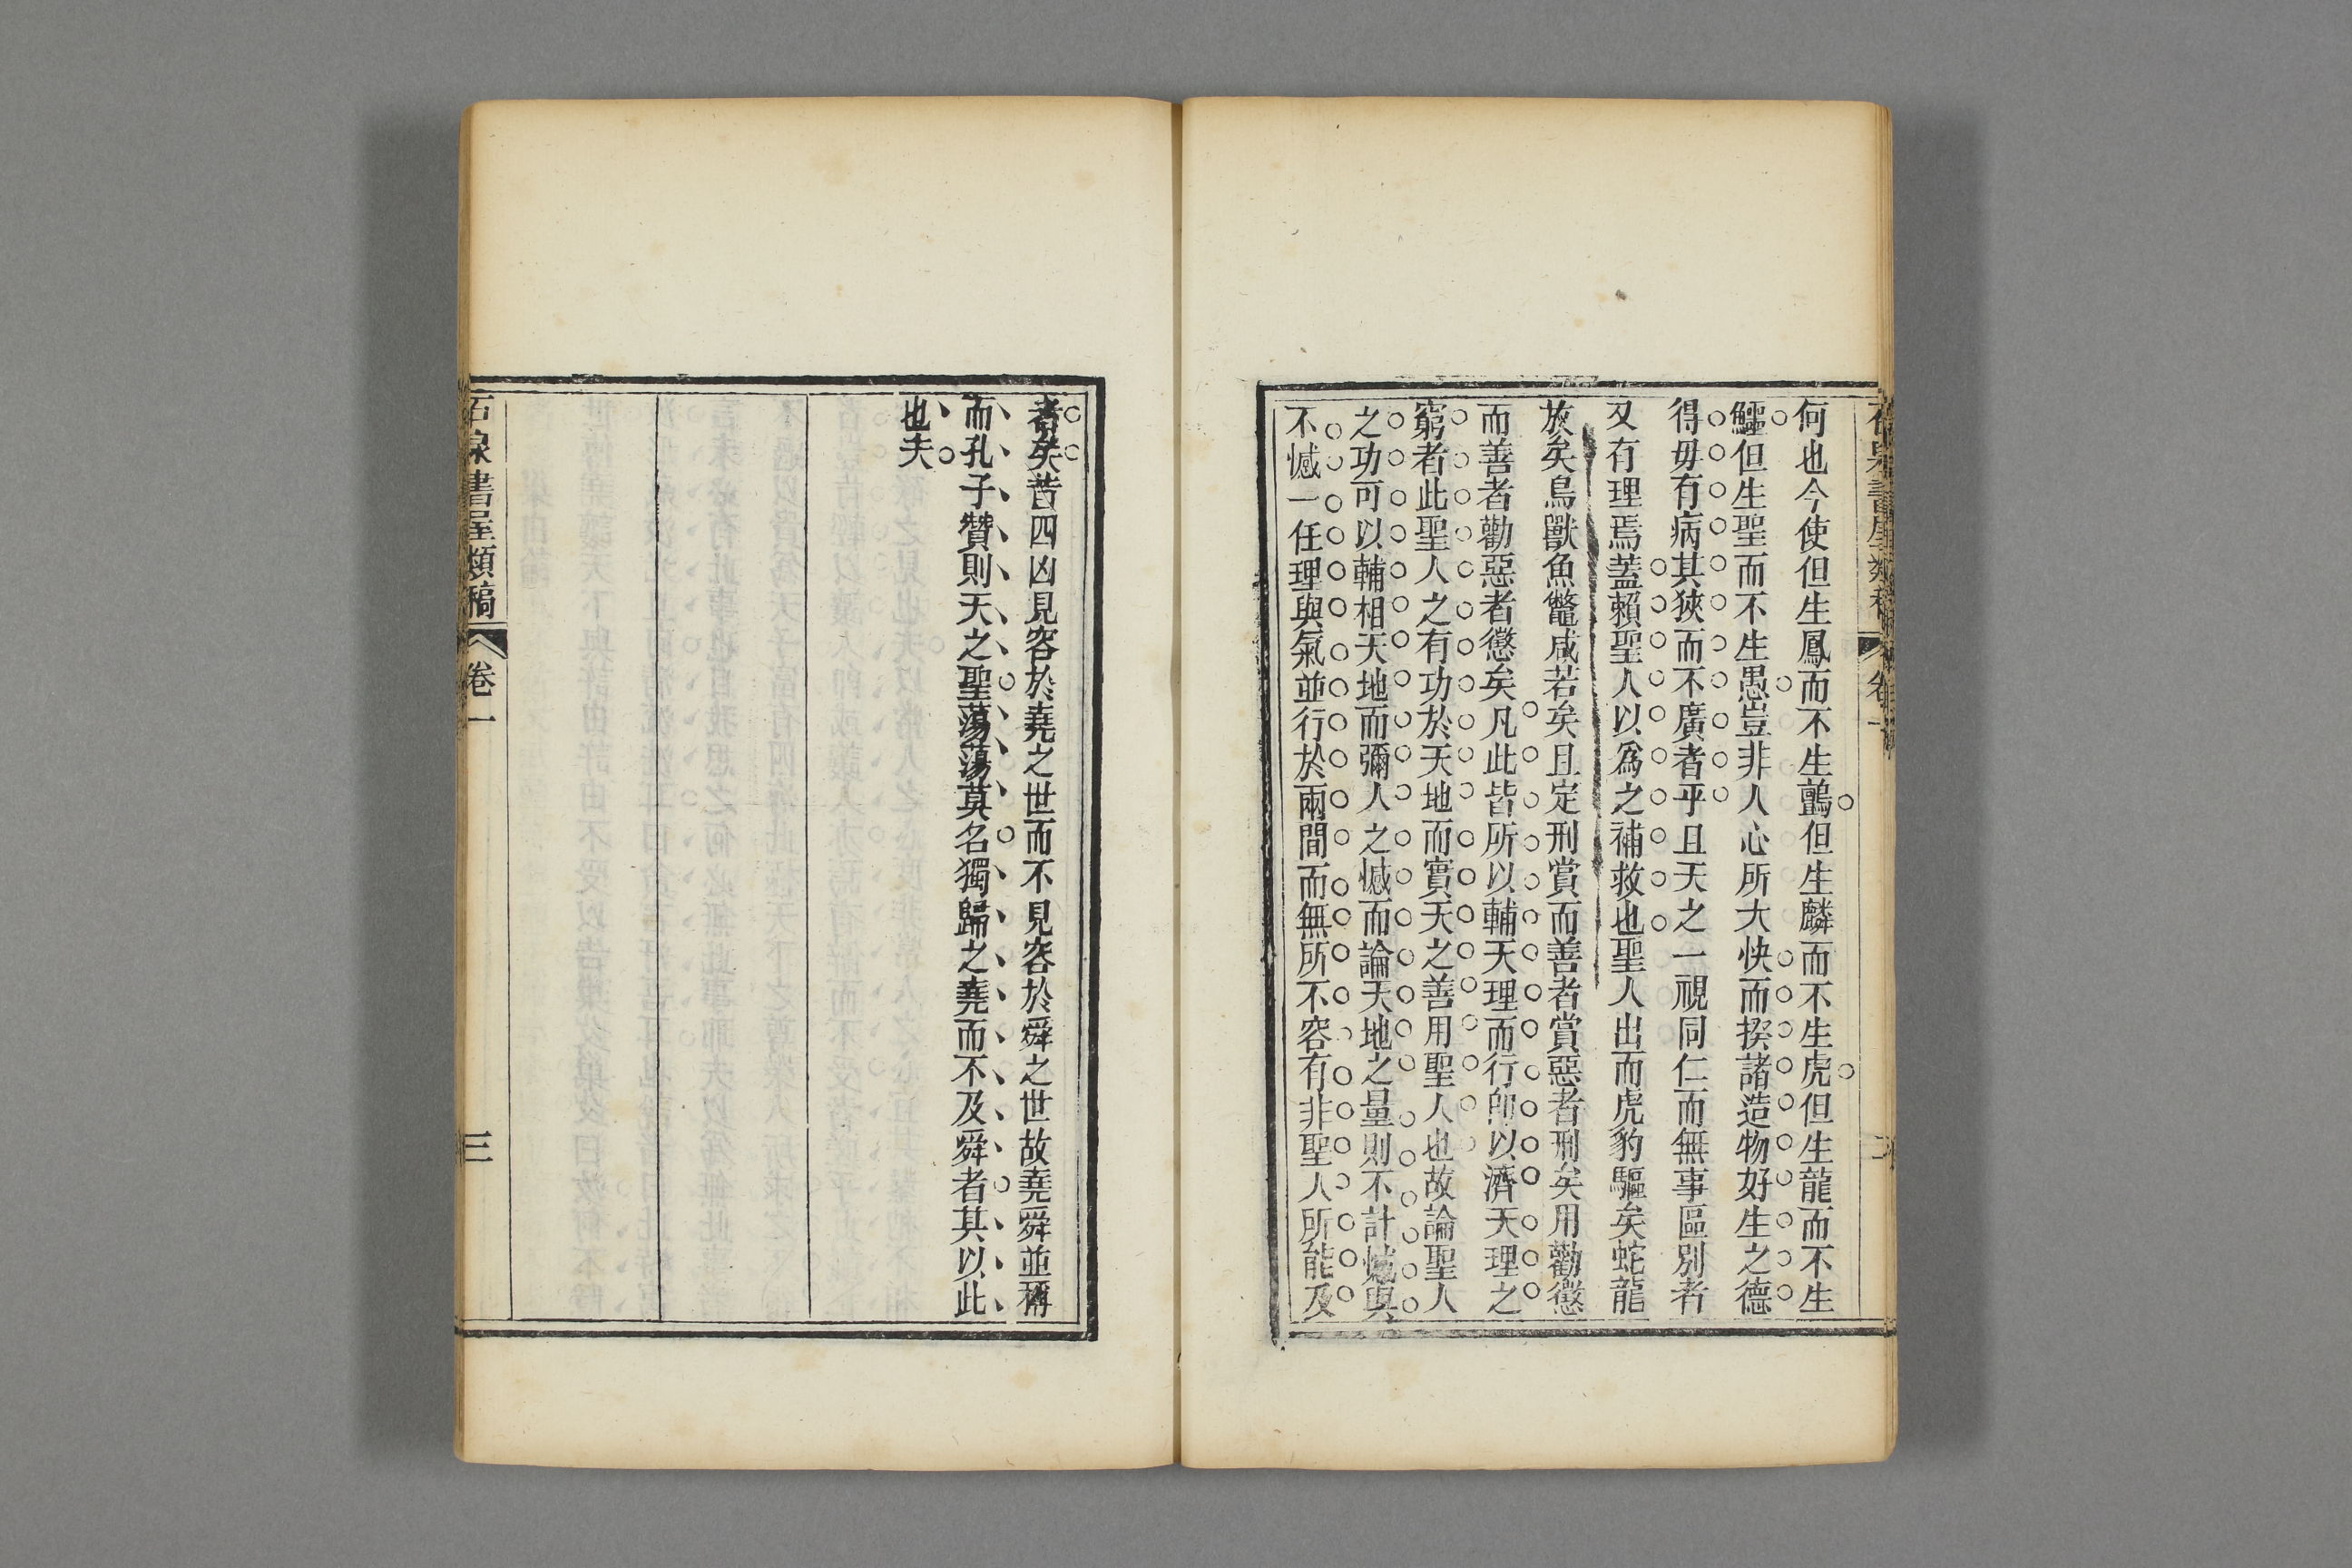 何也今使但生鳳而不生鷧但生麟而不生虎但生龍而不生
鱷但生聖而不生愚豈非人心所大快而揆諸造物好生之德
得毋有病其狹而不廣者乎且天之一視同仁而無事區別者
又有理焉蓋賴聖人以爲之補救也聖人出而虎豹驅矣蛇龍
放矣鳥獸魚鼈咸若矣且定刑賞而善者賞惡者刑矣用勸懲
而善者勸惡者懲矣凡此皆所以輔天理而行卽以濟天理之
窮者此聖人之有功於天地而實天之善用聖人也故論聖人
之功可以輔相天地而彌人之憾而論天地之量則不計憾與
不憾一任理與氣並行於兩間而無所不容有非聖人所能及
者矣昔四凶見容於堯之世而不見容於舜之世故堯舜並稱
而孔子贊則天之聖蕩蕩莫名獨歸之堯而不及舜者其以此
也夫
石泉書屋類稿
卷一
三